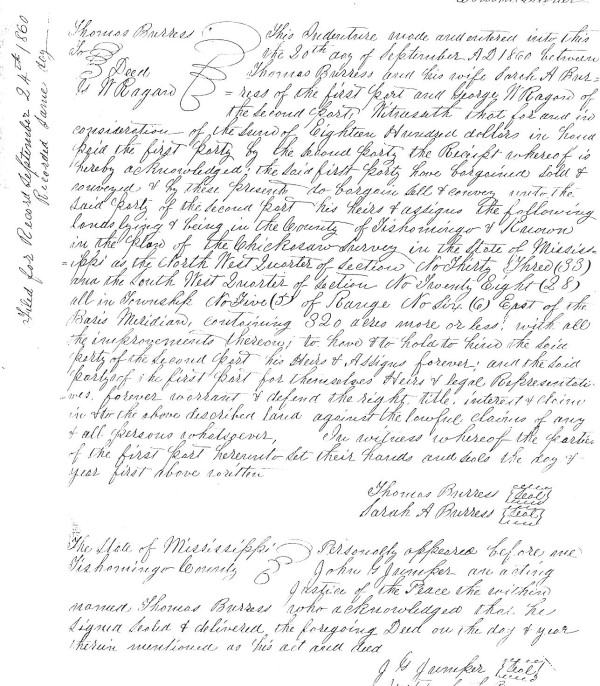 Filed for Record September 24th 1860
Recorded Same day
Thomas Burress
To } Deed
G W Ragan
This Indenture made and entered into this
the 20th day of September A D 1860 between
Thomas Burress and his wife Sarah A Bur-
=ress of the first part and George W Ragan of
the second part, Witnesseth that for and in
consideration of the sum of Eighteen Hundred dollars in hand
paid the first party by the second party the Receipt whereof is
hereby acknowledged; the said first party have bargained sold &
conveyed & by these presents do bargain sell & convey unto the
said party of the second part his heirs & assigns the following
lands lying & being in the County of Tishomingo & Known
in the plan of the Chickasaw survey in the State of Mississ-
=ippi as, the North West Quarter of section No Thirty Three (33)
and the South West Quarter of section No Twenty Eight (28)
all in Township No Five (5) of Range No Six (6) East of the
Basis Meridian, containing 320 acres more or less; with all
the improvements thereon; to have & to hold to him the said
party of the second part his Heirs & Assigns forever; and the said
partys of the first part for themselves Heirs & legal Representati-
=ves, forever warrant & defend the right, title, interest & claim
in & to the above described land against the lawful claims of any
& all persons whatsoever, In witness whereof the parties
of the first part hereunto set their hands and seals the day &
year first above written
Thomas Burress {Seal}
Sarah A Burress {Seal}
The State of Mississippi
Tishomingo County
Personally appeared before me
John G Jumper an acting
Justice of the Peace the within
named Thomas Burress who acknowledged that he
signed sealed & delivered the foregoing Deed on the day & year
therein mentioned as his act and deed
J G Jumper {Seal}